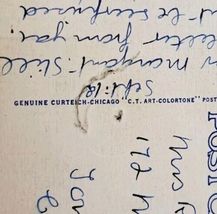 Sept. 12
Margaret: Still
letter from you.
be surprised
GENUINE CURTEICH-CHICAGO "C.T. ART-COLORTONE" POST
POST C
Mrs
172